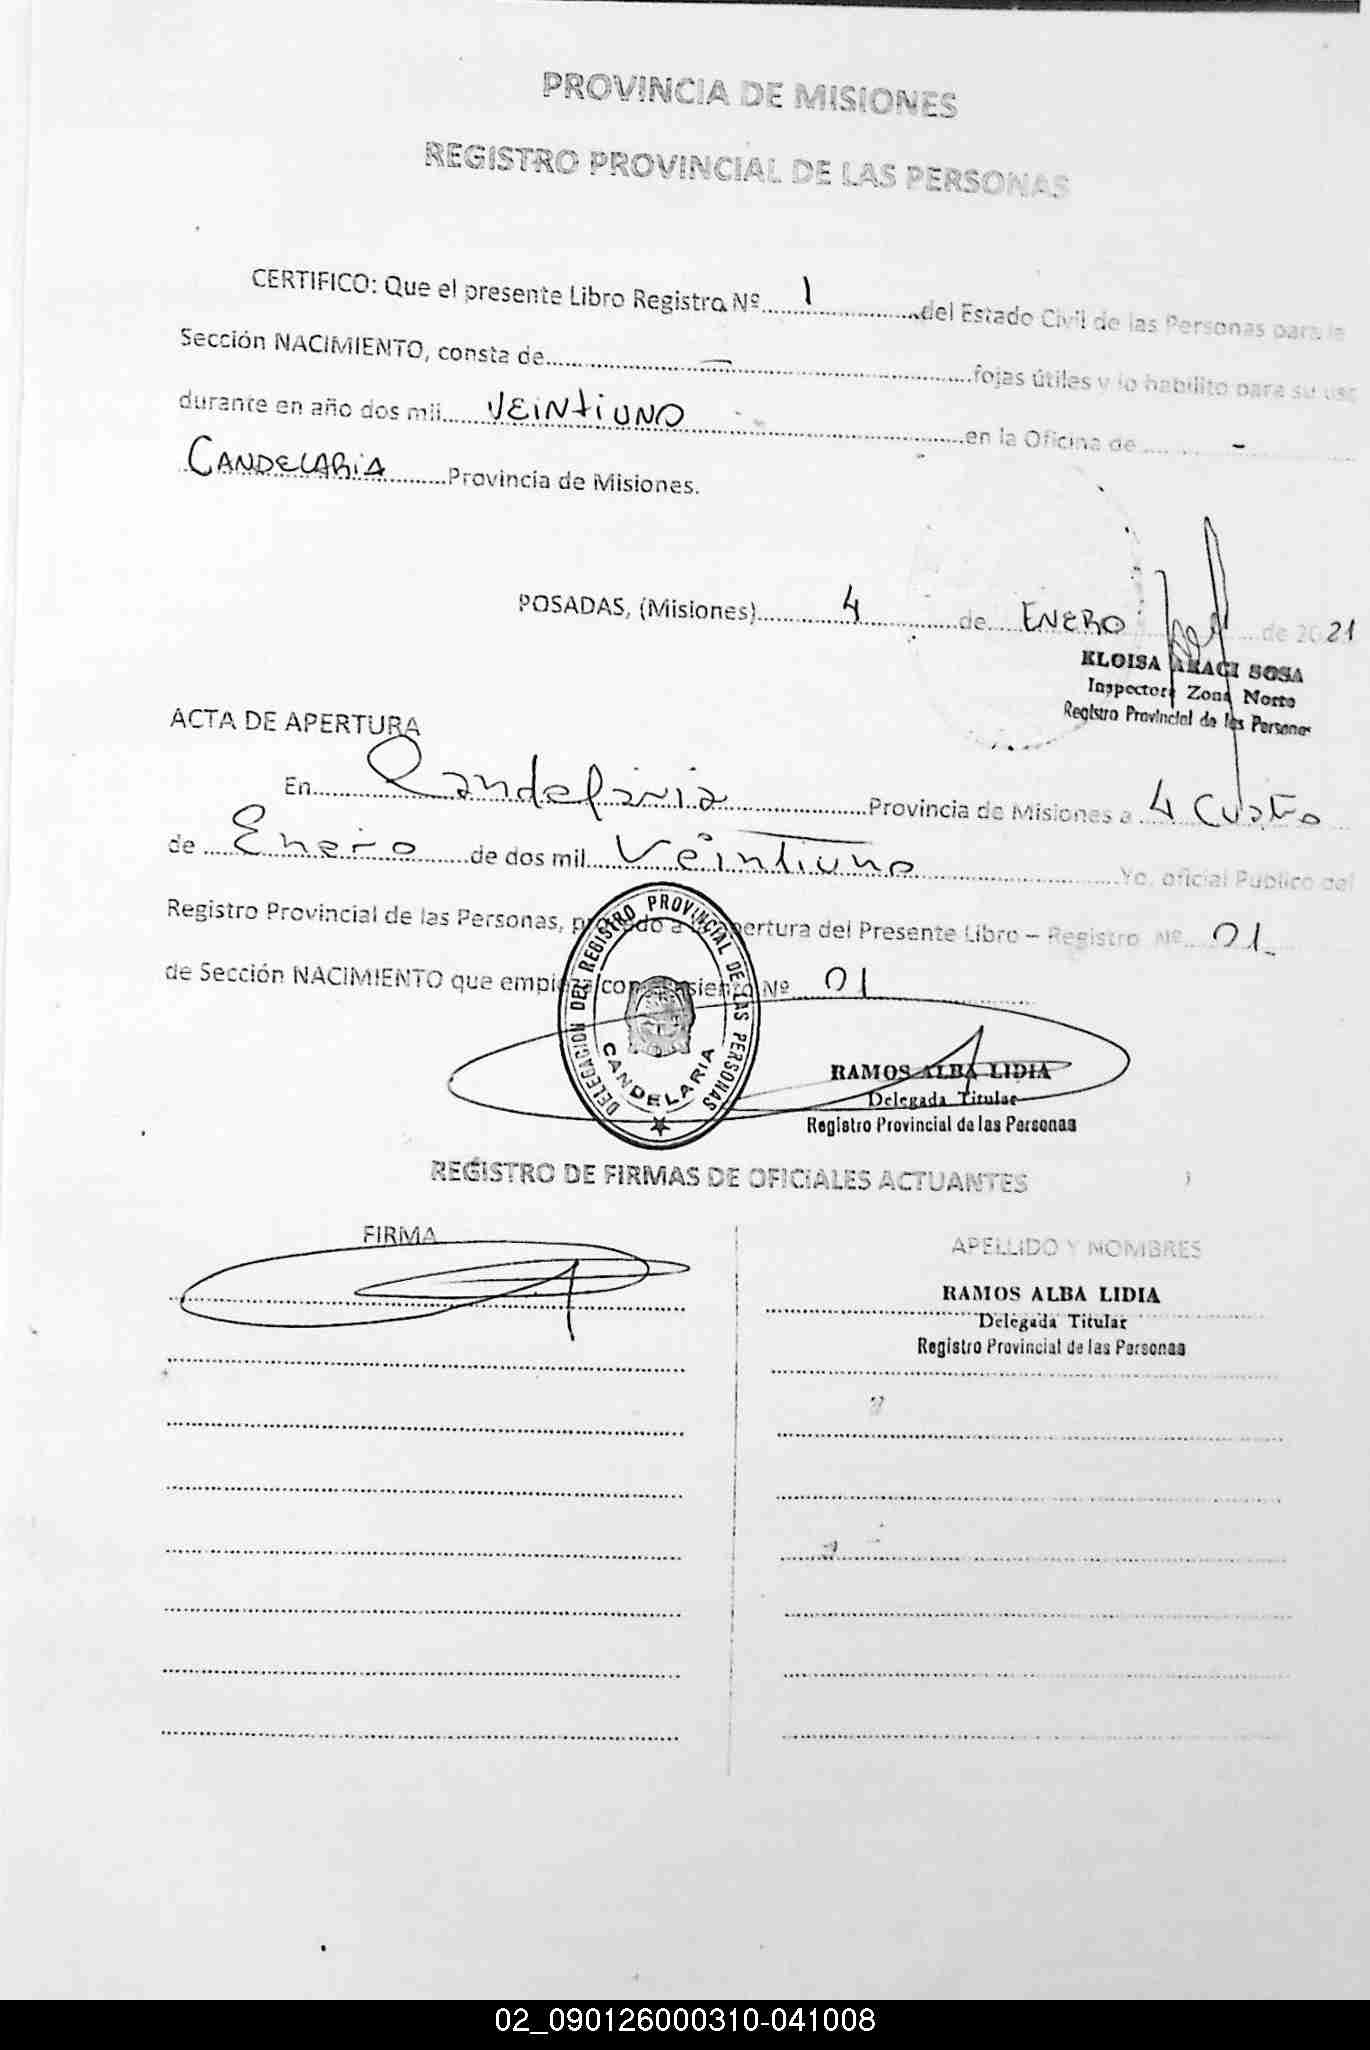 PROVINCIA DE MISIONES
REGISTRO PROVINCIAL DE LAS PERSONAS
CERTIFICO: Que el presente Libro Registro Nº 1 del Estado Civil de las Personas para la
Sección NACIMIENTO, consta de — fojas útiles y lo habilito para su uso
durante en año dos mil VEINTIUNO en la Oficina de -
CANDELARIA Provincia de Misiones.
POSADAS, (Misiones) 4 de ENERO de 2021
ELOISA ARACI SOSA
Inspectora Zona Norte
Registro Provincial de las Personas
ACTA DE APERTURA
En Candelaria Provincia de Misiones a 4 Cuatro
de Enero de dos mil Veintiuno Yo, oficial Publico del
Registro Provincial de las Personas, procedo a la apertura del Presente Libro – Registro Nº 01
de Sección NACIMIENTO que empieza con asiento Nº 01
DELEGACION DEL REGISTRO PROVINCIAL DE LAS PERSONAS
CANDELARIA
RAMOS ALBA LIDIA
Delegada Titular
Registro Provincial de las Personas
REGISTRO DE FIRMAS DE OFICIALES ACTUANTES
FIRMA
APELLIDO Y NOMBRES
RAMOS ALBA LIDIA
Delegada Titular
Registro Provincial de las Personas
02_090126000310-041008